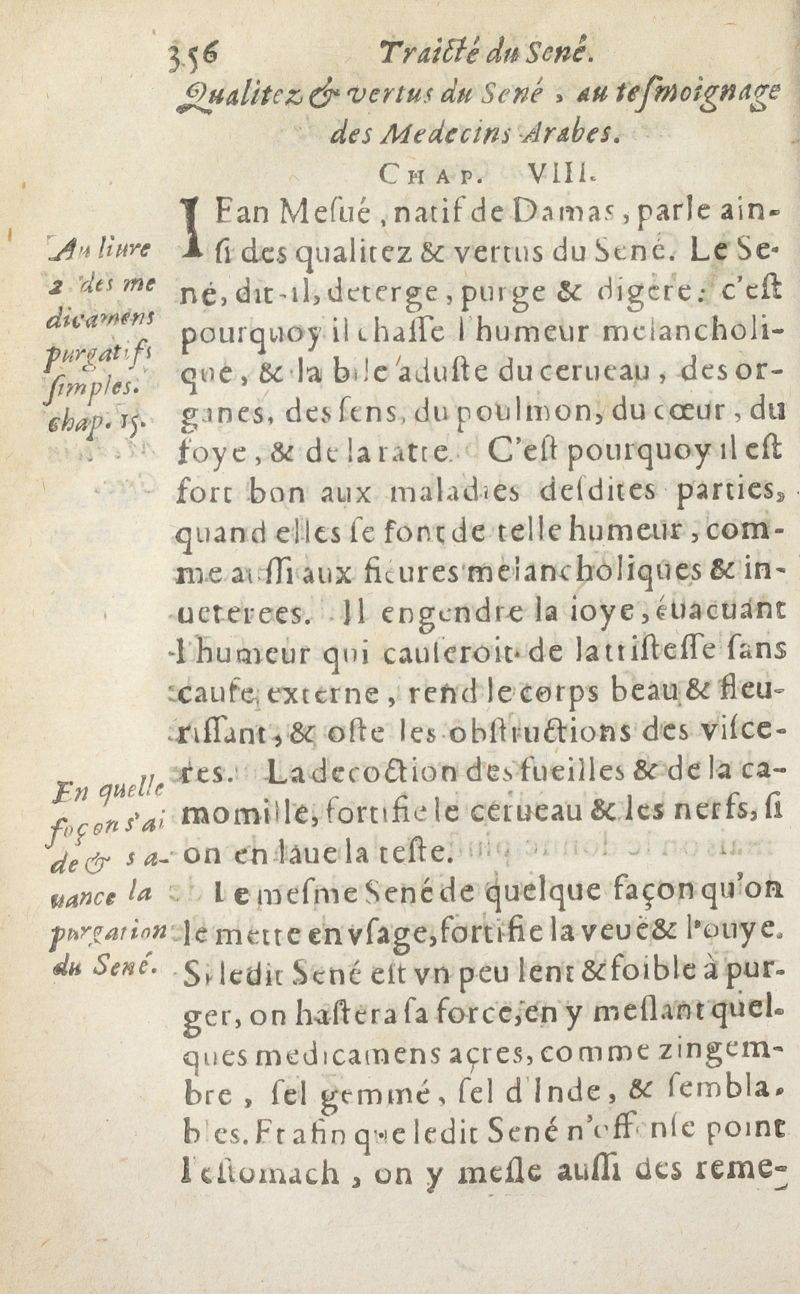 356 Traicté du Sené.
Qualitez & vertus du Sené, au tesmoignage
des Medecins Arabes.
CHAP. VIII.
IEan Mesué, natif de Damas, parle ain-
si des qualitez & vertus du Sené. Le Se-
né, dit-il, deterge, purge & digere: c'est
pourquoy il chasse l'humeur melancholi-
que, & la bile aduste du cerueau, des or-
ganes, des sens, du poulmon, du cœur, du
foye, & de la ratte. C'est pourquoy il est
fort bon aux maladies desdites parties,
quand elles se font de telle humeur, com-
me aussi aux fieures melancholiques & in-
ueterees. Il engendre la ioye, éuacuant
l'humeur qui causeroit de la tristesse sans
cause externe, rend le corps beau & fleu-
rissant, & oste les obstructions des visce-
res. La decoction des fueilles & de la ca-
momille, fortifie le cerueau & les nerfs, si
on en laue la teste.
Le mesme Sené de quelque façon qu'on
le mette en vsage, fortifie la veuë & l'ouye.
Si ledit Sené est vn peu lent & foible à pur-
ger, on hastera sa force, en y meslant quel-
ques medicamens acres, comme zingem-
bre, sel gemmé, sel d'Inde, & sembla-
bles. Et afin que ledit Sené n'offense point
l'estomach, on y mesle aussi des reme-
Au liure
2 des me
dicamens
purgatifs
simples.
chap. 15.
En quelle
façon s'ai
de & s'a-
uance la
purgation
du Sené.